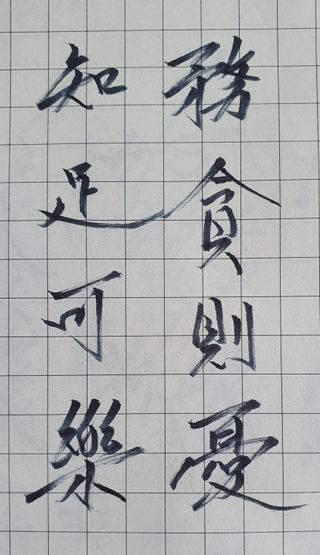 務貪則憂
知足可樂